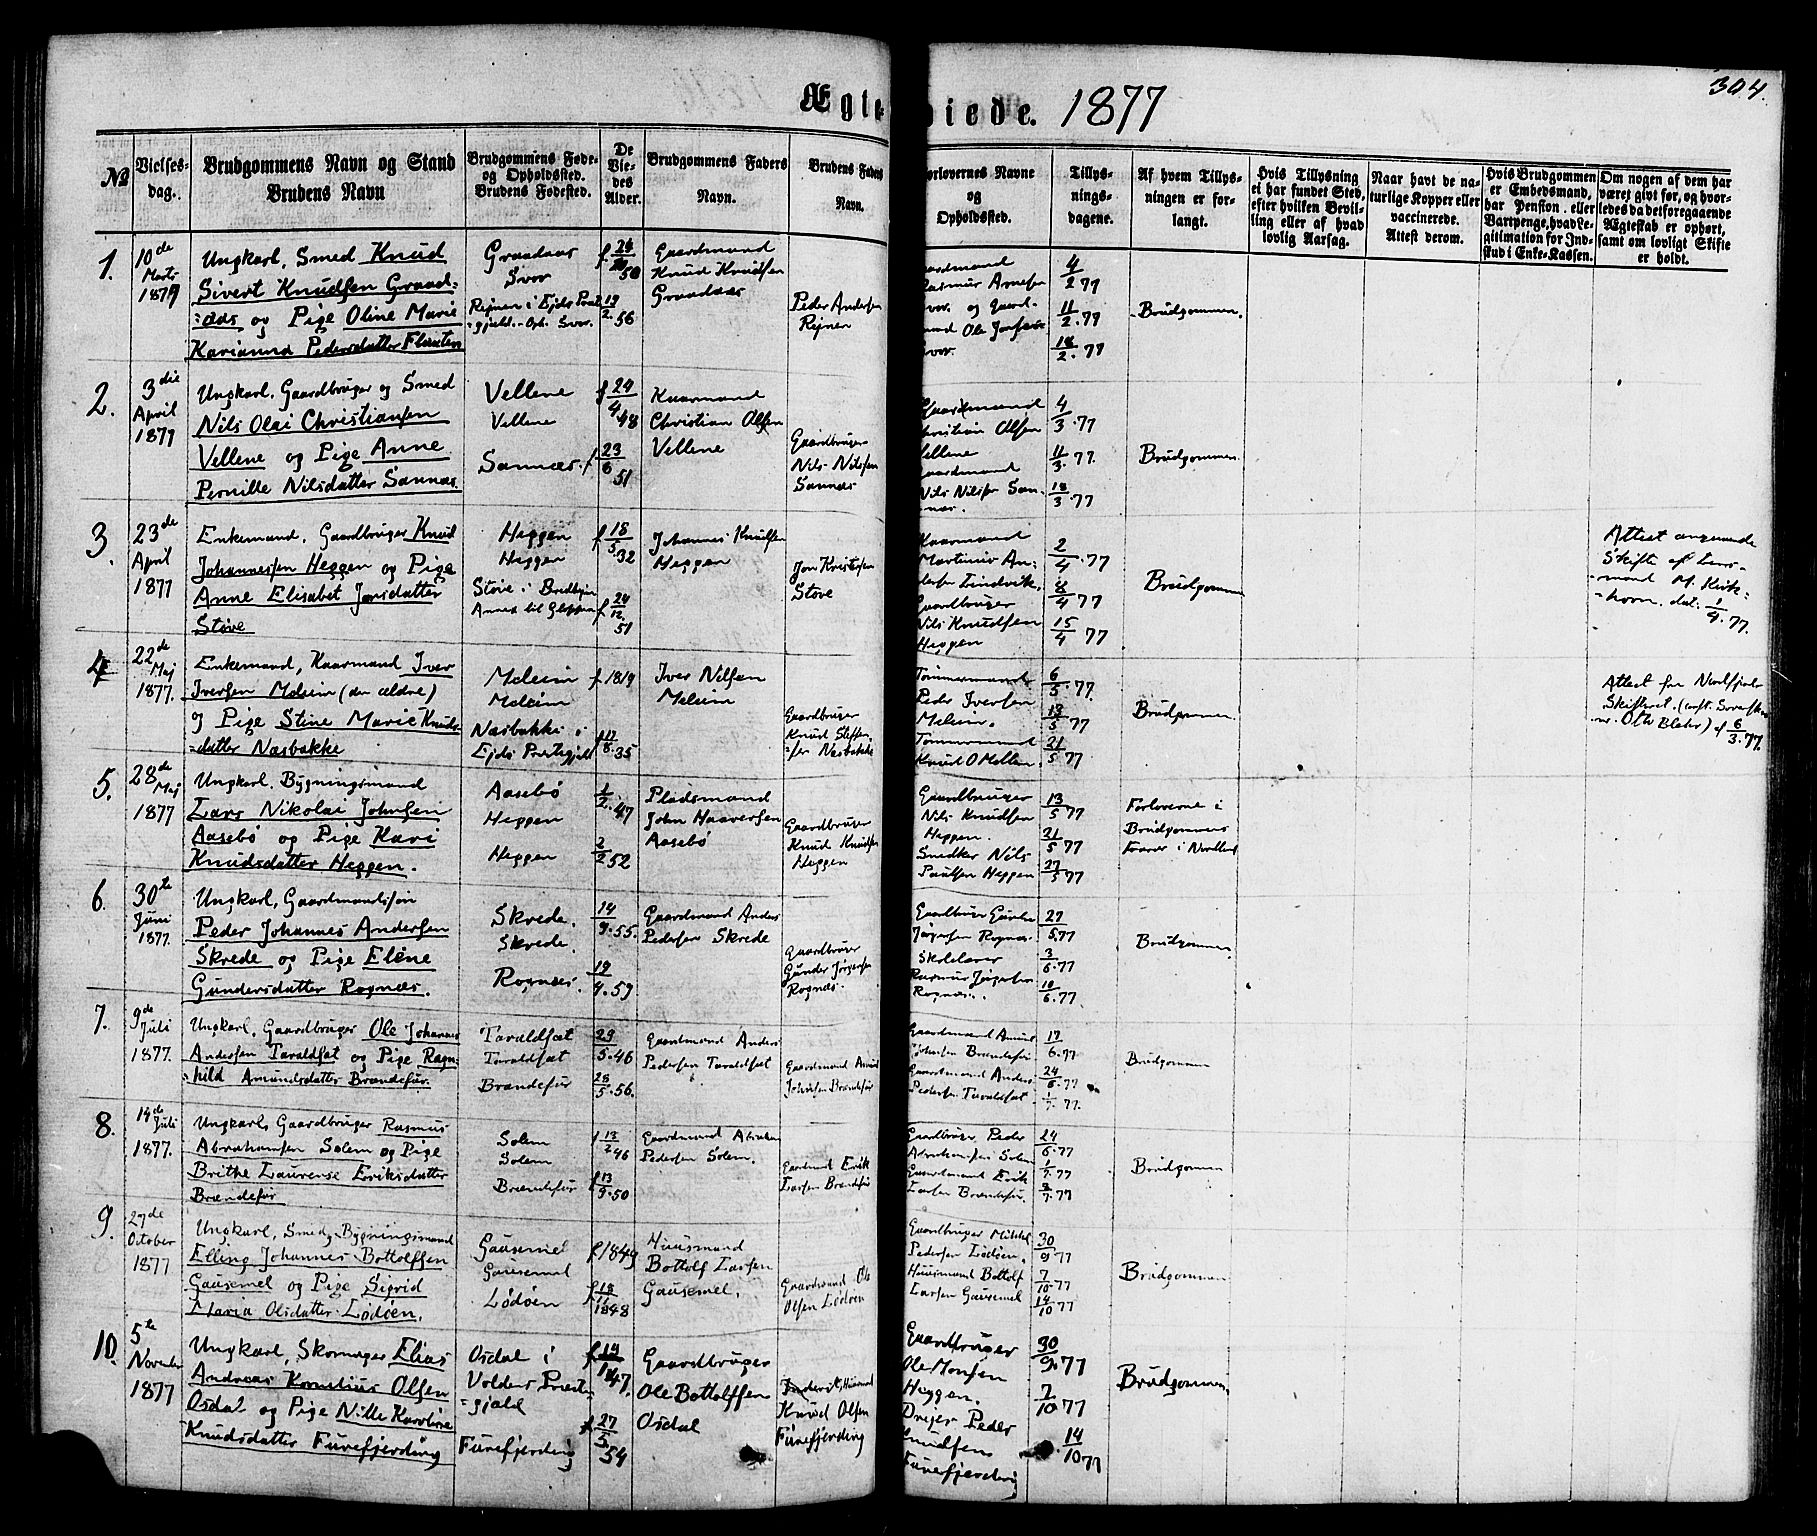 304.
Ægte viede. 1877
№
Vielses-
dag.
Brudgommens Navn og Stand
Brudens Navn
Brudgommens Føde-
og Opholdssted.
Brudens Fødested.
De
Vie-
des
Alder.
Brudgommens Faders
Navn.
Brudens Faders
Navn.
Forlovernes Navne
og
Opholdssted.
Tillys-
nings-
dagene.
Af hvem Tillys-
ningen er for-
langt.
Hvis Tillysning
ei har fundet Sted,
efter hvilken Bevil-
ling eller af hvad
lovlig Aarsag.
Naar havt de na-
turlige Kopper eller
vaccinerede.
Attest derom.
Hvis Brudgommen
er Embedsmand,
har Pension eller
Vartpenge, hvad Le-
gitimation for Ind-
skud i Enke-Kassen.
Om nogen af dem har
været givt før, og hvor-
ledes da det foregaaende
Ægteskab er ophørt,
samt om lovligt Skifte
er holdt.
1.
10de
Marts
1877
Ungkarl, Smed Knud
Sivert Knudsen Graad-
=aas og Pige Oline Marie
Karianna Pedersdatter Flauten
Graadaas
Svor
Rejnen i Ejds Præst
=gjeld.- Oph. Svor.
50
12/2 56
Gaardmand
Knud Knudsen
Graadaas
Peder Andersen
Rejnen
Gaardmand
Rasmus Arnesen
Svor. og Gaard-
mand Ole Josefsen
Svor.
4/2 77
11/2. 77
18/2. 77
Brudgommen.
2.
3die
April
1877
Ungkarl, Gaardbruger og Smed
Nils Olai Christiansen
Vellene og Pige Anne
Pernille Nilsdatter Sannæs.
Vellene
Vellene
Sannæs
f 24/4 48
f 23/6 51
Kaarmand
Christian Olsen
Vellene
Gaardbruger
Nils Nilsen
Sannæs
Christian Olsen
Vellene
Gaardmand
Nils Nilsen San-
næs.
4/3. 77
11/3. 77.
18/3. 77
Brudgommen.
3.
23de
April
1877
Enkemand, Gaardbruger Knud
Johannessen Heggen og Pige
Anne Elisabet Jonsdatter
Støve
Heggen
Heggen
Støve i Bredhejm
Annex til Gloppen
f 18/5 32
f 24/12. 51
Johannes Knudsen
Heggen
Jon Kristensen
Støve
Kaarmand
Martinus An-
dersen Lindvik.
Gaardbruger
Nils Knudsen
Heggen
2/4. 77
8/4 77
15/4 77
Brudgommen
Attest angaaende
Skifte af Lens-
mand M. Kirk-
horn. dat. 1/4. 77.
4
22de
Maj
1877.
Enkemand, Kaarmand Iver
Iversen Meleim (den ældre)
og Pige Stine Marie Knuds-
=datter Næsbakke
Meleim
Meleim
Næsbakke i
Ejds Præstegjeld
f 1819
11/8. 35
Iver Nilsen
Meleim
Gaardbruger
Knud Steffen-
sen Næsbakke
Tømmermand
Peder Iversen
Meleim.
Tømmermand
Knud O Mellem.
6/5. 77
13/5 77
21/5 77
Brudgommen.
5.
28de
Maj
1877
Ungkarl, Bygningsmand
Lars Nikolai Johnsen
Aasebø og Pige Kari
Knudsdatter Heggen.
Aasebø
Heggen
Heggen
1/2. 47
2/2 52
Pladsmand
John Haaversen
Aasebø
Gaardbruger
Knud Knudsen
Heggen
Gaardbruger
Nils Knudsen
Heggen.
Snedker Nils
Paulsen Heggen
13/5 77
21/5 77
27/5 77
Forloverne i
Brudgommens
Fravær i Nordland
6.
30te
Juni
1877.
Ungkarl, Gaardmandssøn
Peder Johannes Andersen
Skrede og Pige Eléne
Gundersdatter Rognæs.
Skrede.
Skrede.
Rognæs.
14/9. 55.
19/4. 59
Gaardmand Anders
Pedersen Skrede
Gaardbruger
Gunder Jørgensen
Rognæs.
Gaardbruger
Jørgensen Rognæs.
Skolelærer
Rasmus Jørgensen
Rognæs.
27/5. 77
3/6. 77
10/6. 77
Brudgommen
7.
9de
Juli
1877.
Ungkarl, Gaardbruger Ole Johannes
Andersen Taraldsæt og Pige Ragn-
=hild Amundsdatter Brændefur.
Taraldsæt
Taraldsæt
Brændefur
29/5. 46
28/5. 56.
Gaardmand Anders
Pedersen Taraldsæt
Gaardmand Amund
Johnsen Brændefur
Gaardmand Amund
Johnsen Brændefur
Gaardmand Anders
Pedersen Taraldsæt
17/6. 77
24/6. 77
1/7. 77.
Brudgommen
8.
14de
Juli
1877.
Ungkarl, Gaardbruger Rasmus
Abrahamsen Solem og Pige
Brithe Laurense Eriksdatter
Brændefur
Solem
Solem
Brændefur
f 13/2 46
f 13/9. 50
Gaardmand Abraham
Pedersen Solem.
Gaardmand Erik
Larsen Brændefur
Gaardbruger Peder
Abrahamsen Solem
Gaardmand Erik
Larsen Brændefur.
24/6. 77
1/7. 77
8/7. 77
Brudgommen
9.
27de
October
1877
Ungkarl, Smed, Bygningsmand
Elling Johannes Bottolfsen
Gausemel og Pige Sigrid
Maria Olsdatter Lødøen.
Gausemel
Gausemel
Lødøen
f 1849
f 18/11 1848
Huusmand
Bottolf Larsen
Gausemel.
Gaardmand Ole
Olsen Lødøen
Gaardbruger Mikkel
Pedersen Lødøen.
Huusmand Bottolf
Larsen Gausemel
30/9 77
7/10. 77
14/10 77
Brudgommen
10.
5te
November
1877
Ungkarl, Skomager Elias
Andreas Kornelius Olsen
Osdal og Pige Nille Karoline
Knudsdatter Furefjerding
Osdal i
Voldens Præste-
=gjeld
Furefjerding
47.
f 27/5 54
Gaardbruger
Ole Bottolfsen
Osdal
Knud Olsen
Furefjerding
Gaardbruger
Ole Monsen
Heggen.
Drejer Peder
Knudsen
Furefjerding
30/9. 77
7/10 77
14/10 77
Brudgommen